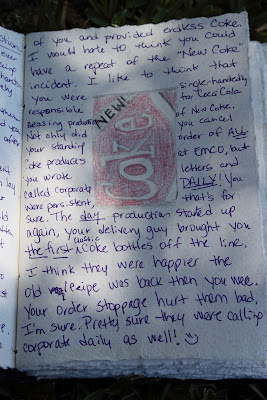 of you and provided endless Coke.
I would hate to think you could
have a repeat of the "New Coke"
incident. I like to think that
you were single-handedly
responsible for Coca Cola
ceasing production of New Coke.
Not only did you cancel
your standing order of ALL
Coke products at EMCO, but
you wrote letters and
called corporate DAILY! You
were persistent, that's for
sure. The day production started up
again, your delivery guy brought you
the first classic Coke bottles off the line.
I think they were happier the
old recipe was back then you were.
Your order stoppage hurt them bad,
I'm sure. Pretty sure they were calling
corporate daily as well!
NEW
Coke